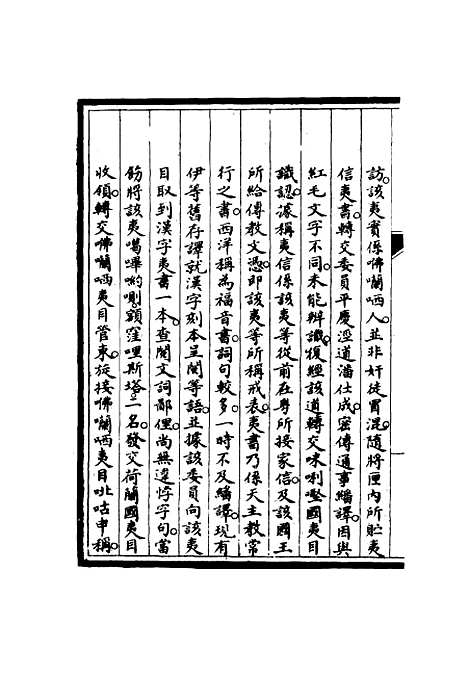 訪該夷實係咈囒哂人並非奸徒冒混隨將匣内所貯夷
信夷書轉交委員平慶涇道潘仕成密傳通事繙譯因與
紅毛文字不同未能辨識復經該道轉交咪唎𠸄國夷目
識認據稱夷信係該夷等從前在粤所接家信及該國王
所給傳教文憑即該夷等所稱戒表夷書乃係天主教常
行之書西洋稱為福音書詞句較多一時不及繙譯現有
伊等舊存譯就漢字刻本呈閲等語並據該委員向該夷
目取到漢字夷書一本查閲文詞鄙俚尚無違悖字句當
飭將該夷噶嗶約唎額窪哩斯塔一名發交荷蘭國夷目
收領轉交咈囒哂夷目管束旋接咈囒哂夷目吡咕申稱